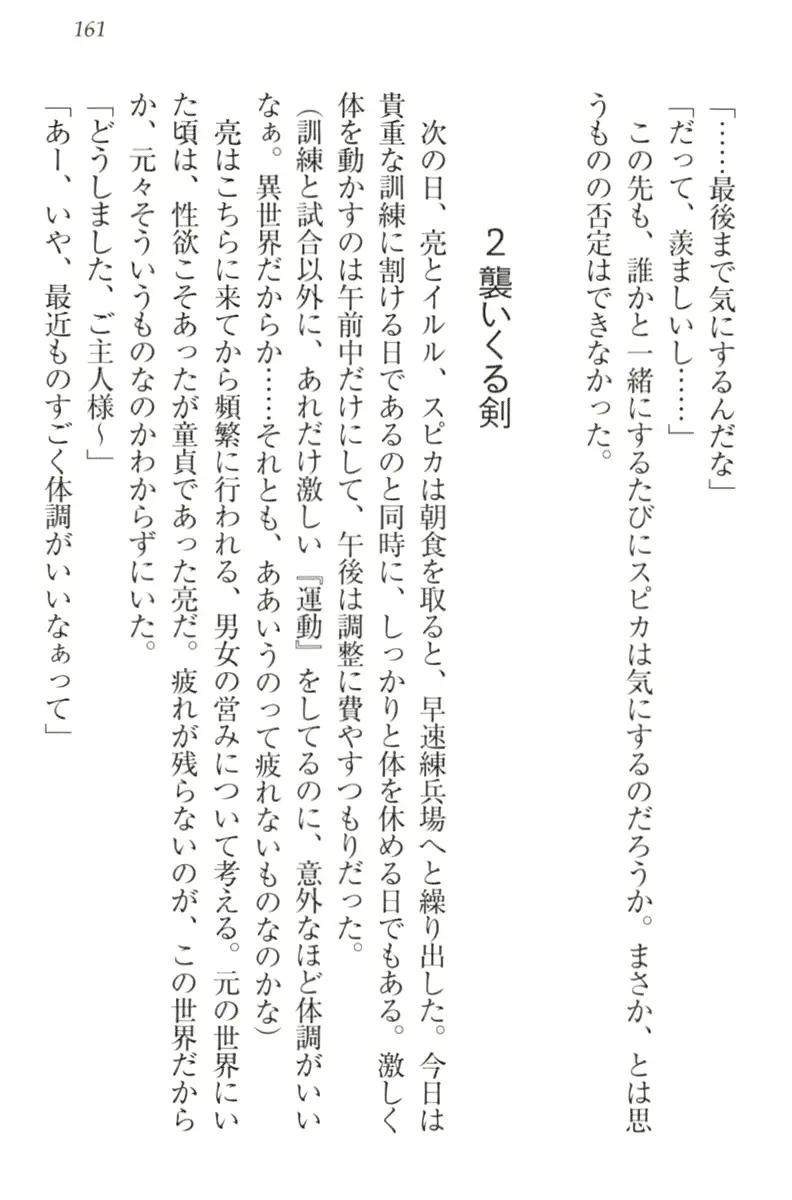 161
「……最後まで気にするんだな」
「だって、羨ましいし……」
この先も、誰かと一緒にするたびにスピカは気にするのだろうか。まさか、とは思
うものの否定はできなかった。
2 襲いくる剣
次の日、亮とイルル、スピカは朝食を取ると、早速練兵場へと繰り出した。今日は
貴重な訓練に割ける日であるのと同時に、しっかりと体を休める日でもある。激しく
体を動かすのは午前中だけにして、午後は調整に費やすつもりだった。
(訓練と試合以外に、あれだけ激しい『運動』をしてるのに、意外なほど体調がいい
なぁ。異世界だからか……それとも、ああいうのって疲れないものなのかな)
亮はこちらに来てから頻繁に行われる、男女の営みについて考える。元の世界にい
た頃は、性欲こそあったが童貞であった亮だ。疲れが残らないのが、この世界だから
か、元々そういうものなのかわからずにいた。
「どうしました、ご主人様～」
「あー、いや、最近ものすごく体調がいいなぁって」